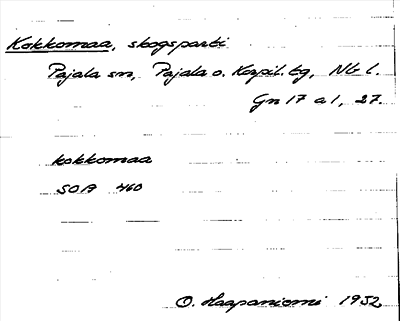 Kokkomaa, skogsparti
Pajala sn, Pajala o. Korpil. tg, Nb l.
Gn 17 a 1, 27.
kokkomaa
SOA 460
O. Haapaniemi 1932